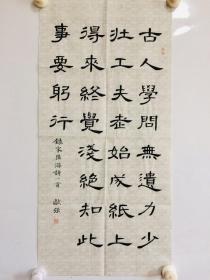 古人學問無遺力少
壮工夫老始成紙上
得來終覺淺絕知此
事要躬行
錄宋陸游詩一首